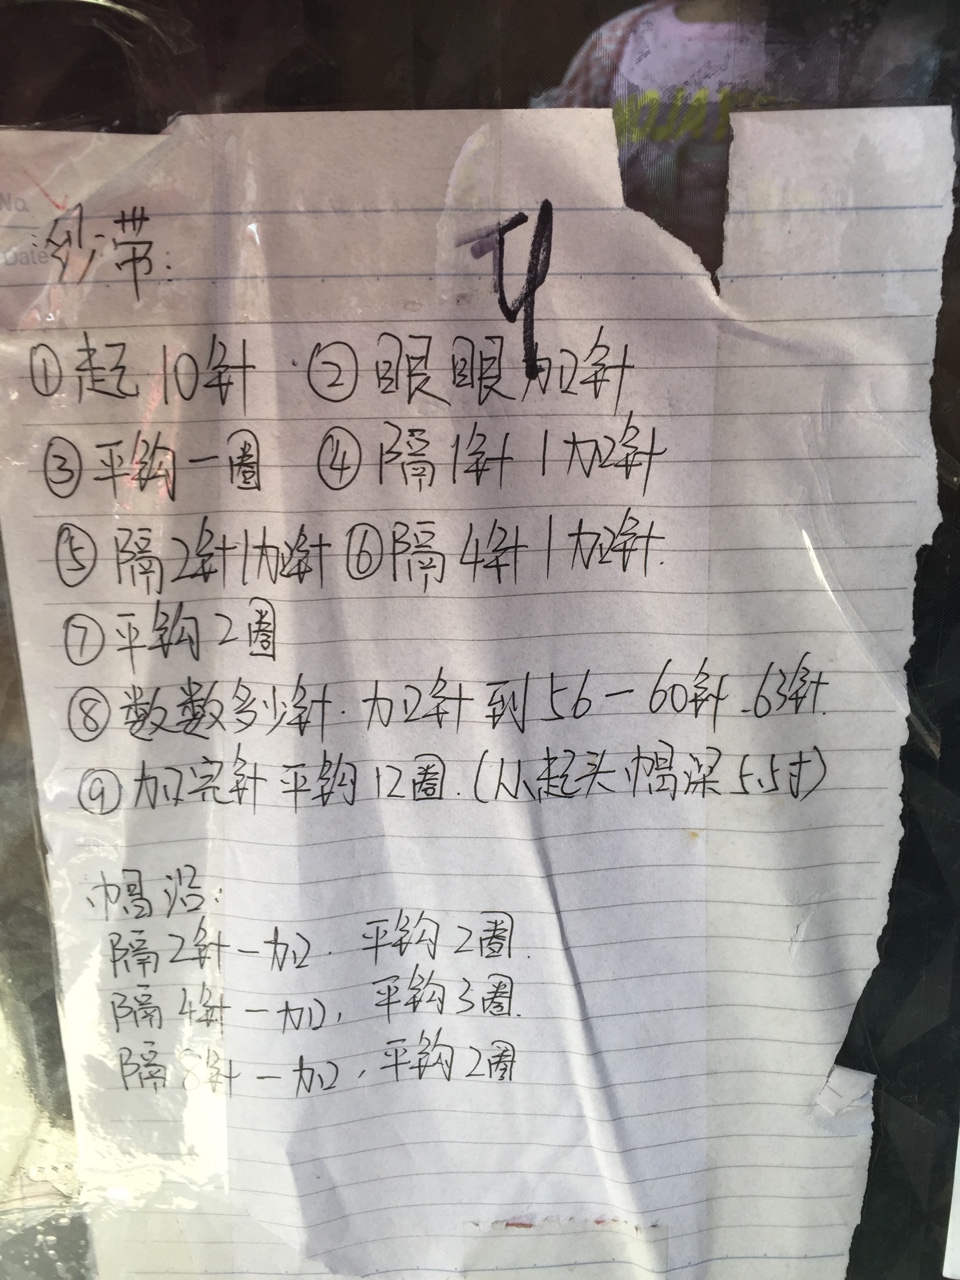 No.
Date
纱带:
①起10针 ②眼眼加针
③平钩一圈 ④隔1针1加针
⑤隔2针1加针 ⑥隔4针1加针.
⑦平钩2圈
⑧数数多少针.加针到56-60针.63针.
⑨加完针平钩12圈.(从起头帽深5.5寸)
帽沿:
隔2针一加.平钩2圈.
隔4针一加,平钩3圈.
隔8针一加,平钩2圈